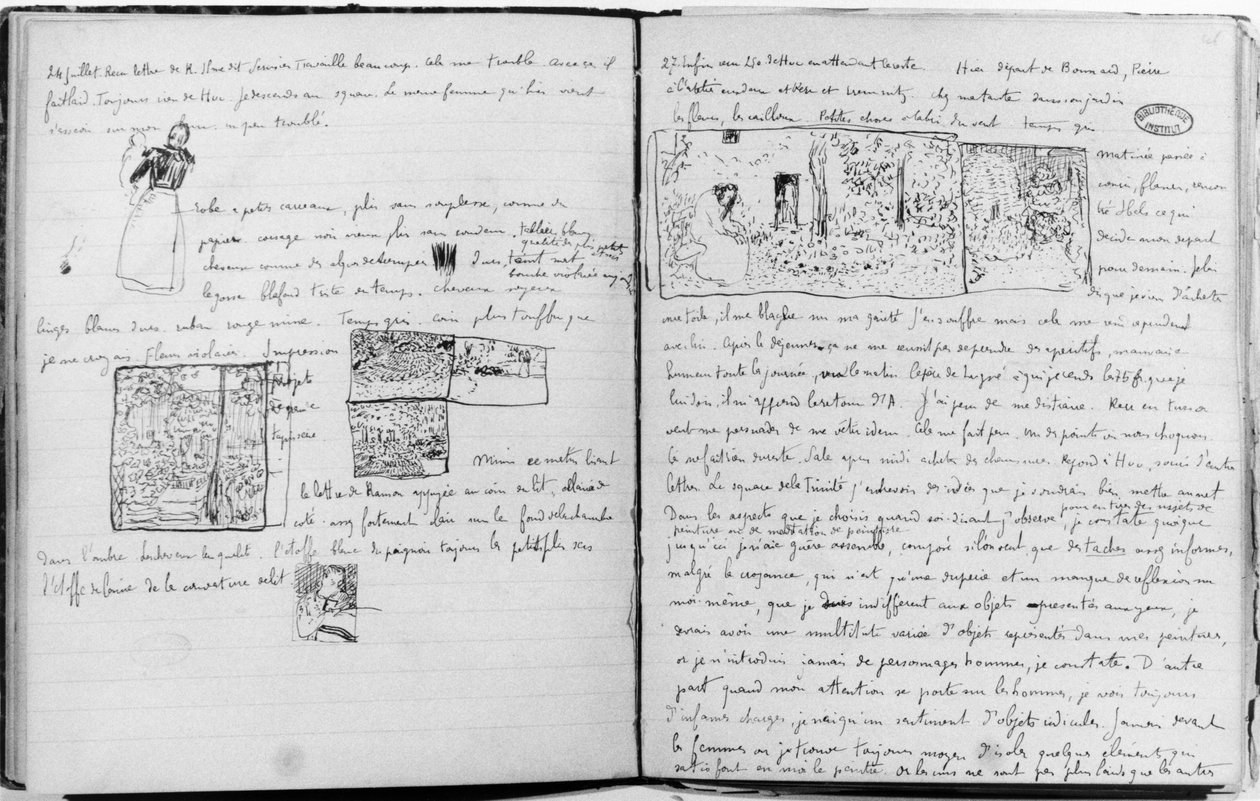 24 Juillet. Reçu lettre de K. Il me dit Serusier Travaille beaucoup. Cela me trouble. Assez il
faut lard. Toujours rien de Huc. Je descends au square. La meme femme qu'hier vient
s'asseoir sur mon banc. un peu troublé.
Robe a petits carreaux, plis sans souplesse, comme du
papier. corsage noir vieux plus sans couleur. tablier blanc
quantité de plis petits
cheveux comme des algues detrempées durs, teint mat
bouche violacée
le gosse blafard triste temps. cheveux soyeux
linges blancs durs. ruban rouge mine. Temps gris. coin plus touffu que
je ne croyais. Fleurs violacées. Impression
projets
de genre
tapisserie
Mimi ce matin lisant
la lettre de Ramon appuyée au coin du lit, eclairée de
coté. assez fortement clair sur le fond de la chambre
Dans l'ombre. l'etoffe blanc du peignoir toujours les petits plis secs
l'etoffe de laine de la couverture de lit
27. Enfin reçu 250 de Huc en attendant le reste. Hier départ de Bonnard, Pierre
chez ma tante dans son jardin
les fleurs, les cailloux. Petites choses a l'abri du vent temps gris
BIBLIOTHÈQUE
INSTITUT
matinée passée à
courir, flaner, rencon
tré Ibels ce qui
decide mon depart
pour demain. Je lui
dis que je viens d'acheter
une toile, il me blague sur ma gaieté J'en souffre mais cela me rend cependant
avec lui. Après le déjeuner ça ne me reussit pas de prendre des aperitifs, mauvaise
humeur toute la journée, vers le matin. Le père de Lugné à qui je rends les 75 fr. que je
lui dois, il m'apprend le retour d'A. J'ai peur de me distraire. Rene en tresor
veut me persuader de me vétir idem. Cela me fait peur. un des points où nous choquons.
Ca ne fait rien du reste. Sale apres midi acheter des chaussures. Repond à Huc, soucis d'autres
lettres. Le square de la Trinité j'entrevois des idées que je voudrais bien mettre au net
pour en tirer des sujets de
Dans les aspects que je choisis quand soi-disant j'observe, je constate quoique
peinture ou de meditation de peinture
jusqu'ici je n'aie guère assemblé, composé si l'on veut que des taches assez informes,
malgré la croyance, qui n'est qu'une duperie et un manque de reflexion sur
moi-même, que je suis indifférent aux objets représentés aux yeux, je
devrais avoir une multitude variée d'objets representés dans mes peintures,
or je n'introduis jamais de personnages hommes, je constate. D'autre
part quand mon attention se porte sur les hommes, je vois toujours
d'infames charges, je n'ai qu'un sentiment d'objets ridicules. Jamais devant
les femmes ou je trouve toujours moyen d'isoler quelques elements qui
satisfont en moi le peintre. Or les uns ne sont pas plus laids que les autres